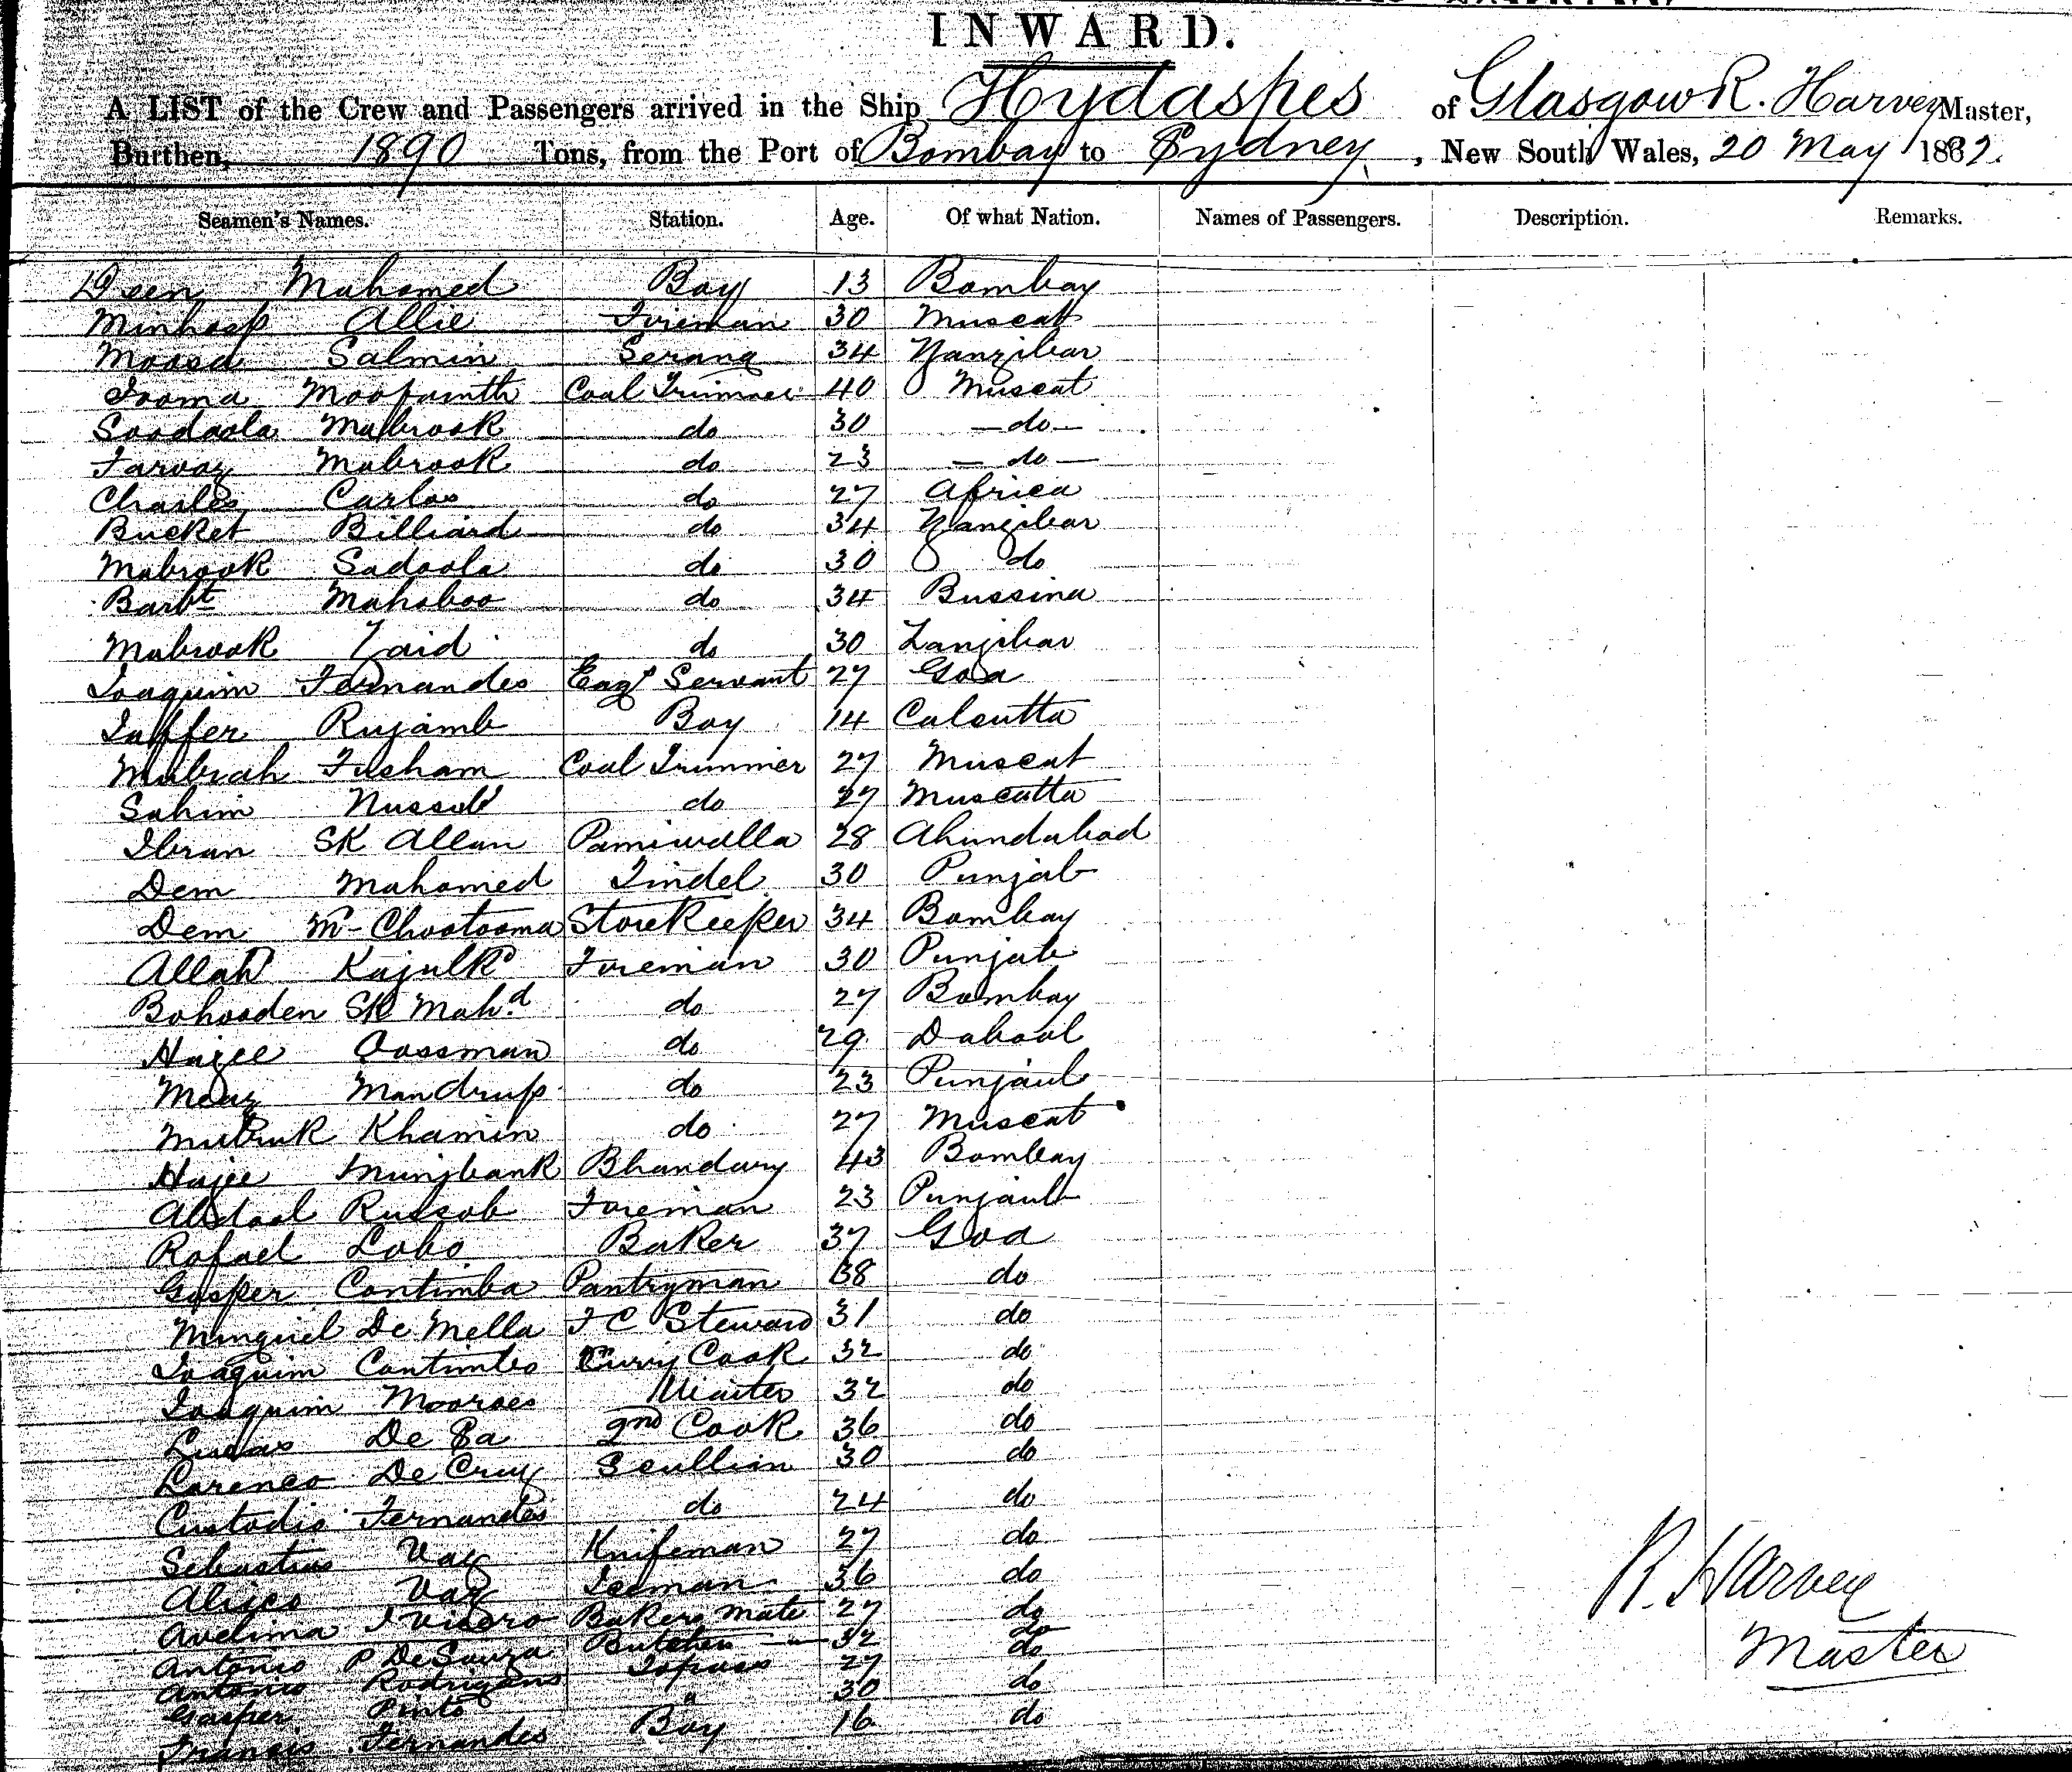 INWARD.
A LIST of the Crew and Passengers arrived in the Ship Hydaspes of Glasgow R. Harvey Master,
Burthen, 1890 Tons, from the Port of Bombay to Sydney, New South Wales, 20 May 1882.
Seamen's Names. Station. Age. Of what Nation. Names of Passengers. Description. Remarks.
Deen Mahomed Boy 13 Bombay
Minhasp Allie Fireman 30 Muscat
Moosa Salmin Serang 34 Zanzibar
Jooma Coal Trimmer 40 Muscat
Soodoola Mabrook do 30 - do -
Farvoz Mabrook do 23 - do -
Charles Carlos do 27 Africa
Bucket Billiard do 34 Zanzibar
Mabrook Sadoola do 30 do
Barkt Mahaboo do 34 Bussina
Mabrook Zaid do 30 Zanzibar
Joaquim Fernandes Engr Servant 27 Goa
Jaffer Rujamb Boy 14 Calcutta
Mabrah Fusham Coal Trimmer 27 Muscat
Sahim Nussub do 27 Muscatta
Ibran SK Allan Paniwalla 28 Ahundabad
Dem Mahomed Tindel 30 Punjab
Dem M- Chootooma StoreKeeper 34 Bombay
Allah Fireman 30 Punjab
Bohooden SK Mahd do 27 Bombay
Hajee Oossman do 29 Dabool
Meaz Mandrup do 23 Punjaub
Mubruk Khamin do 27 Muscat
Hajee Munjbank Bhandary 43 Bombay
Abdool Russob Fireman 23 Punjaub
Rofael Lobo Baker 37 Goa
Gasper Contimba Pantryman 38 do
Minguel De Mella F C Steward 31 do
Joaquim Contimbo Curry Cook 32 do
Joaquim Mooraes Waiter 32 do
Lucas De Sa 2nd Cook 36 do
Lorenco De Cruz Scullion 30 do
Custodio Fernandes do 24 do
Sebastiao Vaz Knifeman 27 do
Alisco Vaz Iceman 36 do
Avelima Bakers Mate 27 do
Antonio P DeSouza Butcher 32 do
Antonio Rodrigans Topass 27 do
Gasper Pinto " 30 do
Francis Fernandes Boy 16 do
R. Harvey
Master